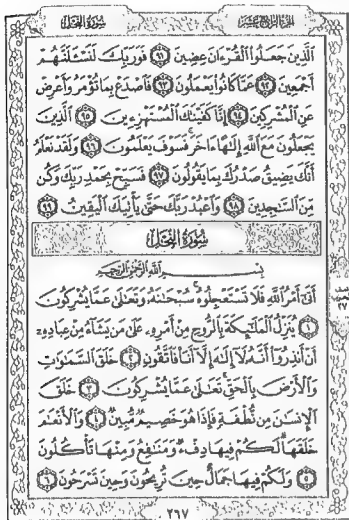 سُورَةُ النَّحْل الجزء الرابع عشر
الَّذِينَ جَعَلُوا الْقُرْءَانَ عِضِينَ ٩١ فَوَرَبِّكَ لَنَسْـَٔلَنَّهُمْ
أَجْمَعِينَ ٩٢ عَمَّا كَانُوا يَعْمَلُونَ ٩٣ فَاصْدَعْ بِمَا تُؤْمَرُ وَأَعْرِضْ
عَنِ الْمُشْرِكِينَ ٩٤ إِنَّا كَفَيْنَاكَ الْمُسْتَهْزِءِينَ ٩٥ الَّذِينَ
يَجْعَلُونَ مَعَ اللَّهِ إِلَٰهًا ءَاخَرَ فَسَوْفَ يَعْلَمُونَ ٩٦ وَلَقَدْ نَعْلَمُ
أَنَّكَ يَضِيقُ صَدْرُكَ بِمَا يَقُولُونَ ٩٧ فَسَبِّحْ بِحَمْدِ رَبِّكَ وَكُن
مِّنَ السَّٰجِدِينَ ٩٨ وَاعْبُدْ رَبَّكَ حَتَّىٰ يَأْتِيَكَ الْيَقِينُ ٩٩
سُورَةُ النَّحْل
بِسْمِ اللَّهِ الرَّحْمَٰنِ الرَّحِيمِ
أَتَىٰ أَمْرُ اللَّهِ فَلَا تَسْتَعْجِلُوهُ سُبْحَٰنَهُ وَتَعَٰلَىٰ عَمَّا يُشْرِكُونَ
١ يُنَزِّلُ الْمَلَٰٓئِكَةَ بِالرُّوحِ مِنْ أَمْرِهِ عَلَىٰ مَن يَشَآءُ مِنْ عِبَادِهِ
أَنْ أَنذِرُوا أَنَّهُ لَآ إِلَٰهَ إِلَّآ أَنَا فَاتَّقُونِ ٢ خَلَقَ السَّمَٰوَٰتِ
وَالْأَرْضَ بِالْحَقِّ تَعَٰلَىٰ عَمَّا يُشْرِكُونَ ٣ خَلَقَ
الْإِنسَٰنَ مِن نُّطْفَةٍ فَإِذَا هُوَ خَصِيمٌ مُّبِينٌ ٤ وَالْأَنْعَٰمَ
خَلَقَهَا لَكُمْ فِيهَا دِفْءٌ وَمَنَٰفِعُ وَمِنْهَا تَأْكُلُونَ
٥ وَلَكُمْ فِيهَا جَمَالٌ حِينَ تُرِيحُونَ وَحِينَ تَسْرَحُونَ ٦
٢٦٧